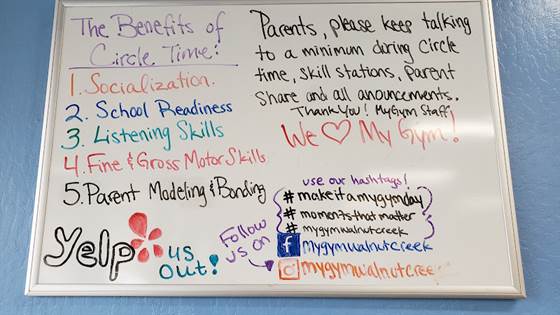 The Benefits of
Circle Time:
1. Socialization.
2. School Readiness
3. Listening Skills
4. Fine & Gross Motor Skills
5. Parent Modeling & Bonding
yelp us
Out!
Parents, please keep talking
to a minimum during Circle
time, skill stations, parent
share and all anouncements.
Thank You! MyGym Staff
We ♡ My Gym!
use our hashtags!
#makeitamygymday
#momentsthatmatter
#mygymwalnutcreek
Follow
us on
f mygymwalnutcreek
mygymwalnutcreek